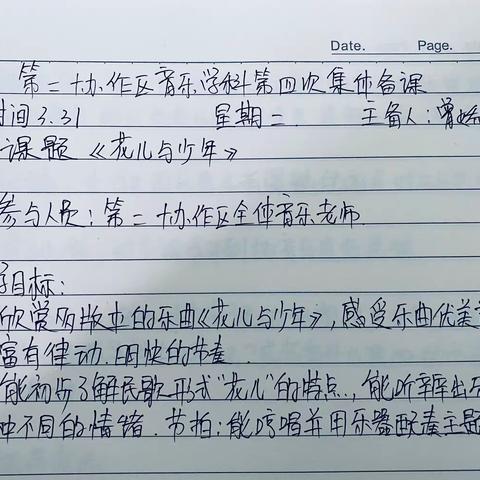 Date. Page.
第二协作区音乐学科第四次集体备课
时间3.31 星期二. 主备人:曾
课题《花儿与少年》
参与人员:第二协作区全体音乐老师.
学目标:
欣赏两版本的乐曲《花儿与少年》,感受乐曲优美
富有律动.明快的节奏.
能初步了解民歌形式"花儿"的特点.,能听辨出
种不同的情绪.节拍;能哼唱并用乐器配奏主题